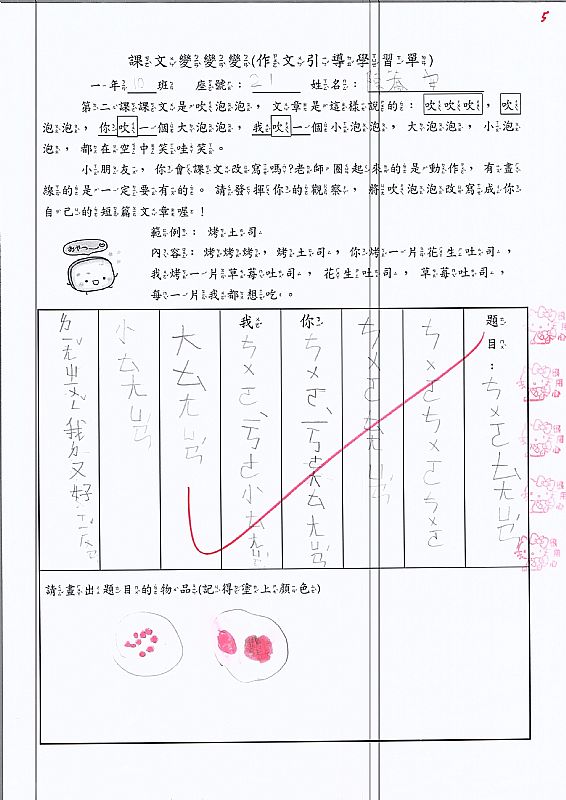 5
課文變變變(作文引導學習單)
一年10班 座號：21 姓名：
第二課課文是吹泡泡，文章是這樣說的：吹吹吹，吹
泡泡，你吹一個大泡泡，我吹一個小泡泡，大泡泡，小泡
泡，都在空中笑哇笑。
小朋友，你會課文改寫嗎?老師圈起來的是動作，有畫
線的是一定要有的。請發揮你的觀察，將吹泡泡改寫成你
自己的短篇文章喔！
範例：烤土司
內容：烤烤烤，烤土司，你烤一片花生吐司，
我烤一片草莓吐司，花生吐司，草莓吐司，
每一片我都想吃。
題目：ㄘㄨㄛㄊㄤㄩㄢ
ㄘㄨㄛㄘㄨㄛㄘㄨㄛ
ㄘㄨㄛㄊㄤㄩㄢ
你ㄘㄨㄛ一ㄎㄜ大ㄊㄤㄩㄢ
我ㄘㄨㄛ一ㄎㄜ小ㄊㄤㄩㄢ
大ㄊㄤㄩㄢ
小ㄊㄤㄩㄢ
請畫出題目的物品(記得塗上顏色)